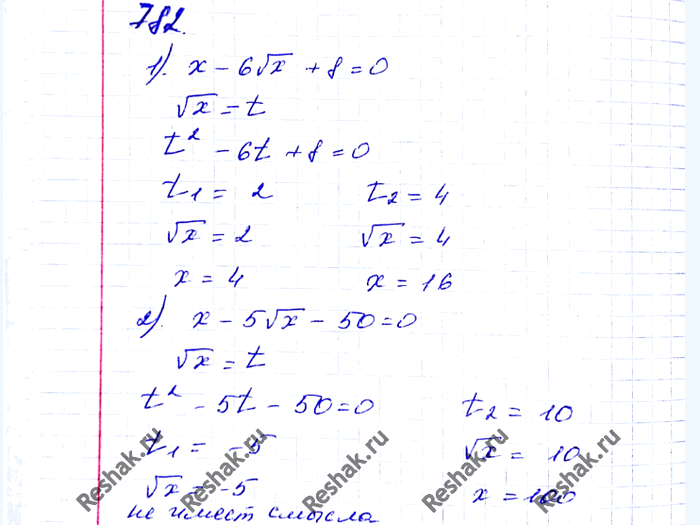 782.
1). x - 6√x + 8 = 0
√x = t
t² - 6t + 8 = 0
t₁ = 2 t₂ = 4
√x = 2 √x = 4
x = 4 x = 16
2). x - 5√x - 50 = 0
√x = t
t² - 5t - 50 = 0 t₂ = 10
t₁ = -5 √x = 10
√x = -5 x = 100
не имеет смысла
Reshak.ru Reshak.ru Reshak.ru Reshak.ru Reshak.ru